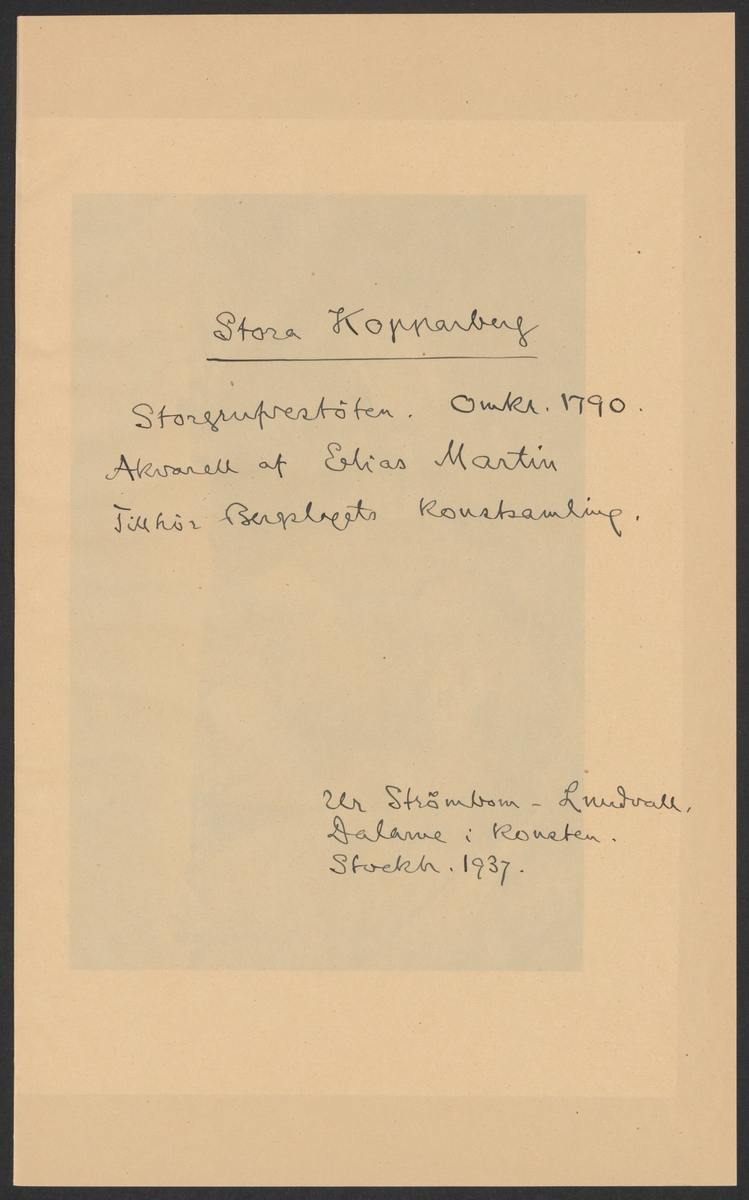 Stora Kopparberg
Storgrufvestöten. Omkr. 1790.
Akvarell af Elias Martin
Tillhör Bergslagets Konstsamling.
Ur Strömbom - Lundvall,
Dalarne i Konsten.
Stockh. 1937.